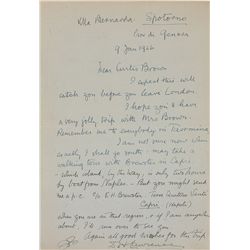 Villa Bernarda Spotorno
Prov. di Genova
9 Jan 1926
Dear Curtis Brown
I expect this will
catch you before you leave London
I hope you'll have
a very jolly trip with Mrs Brown.
Remember me to everybody in Taormina
I am not sure now when
exactly I shall go south - may take a
walking tour with Brewster in Capri
- which island, by the way, is only two hours
by boat from Naples. - But you might send
me a p.c. c/o E H Brewster, Torre Quattro Venti
Capri (Napoli)
when you are in that region, & if I am anywhere
about, I'll run over to see you
Again all good wishes for the trip
D H Lawrence